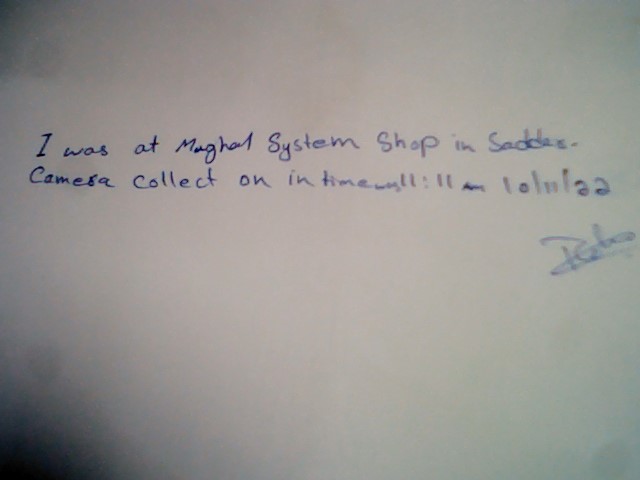 I was at Mughal System Shop in Saddar.
Camera collect on in time 11:11 am 10/11/22